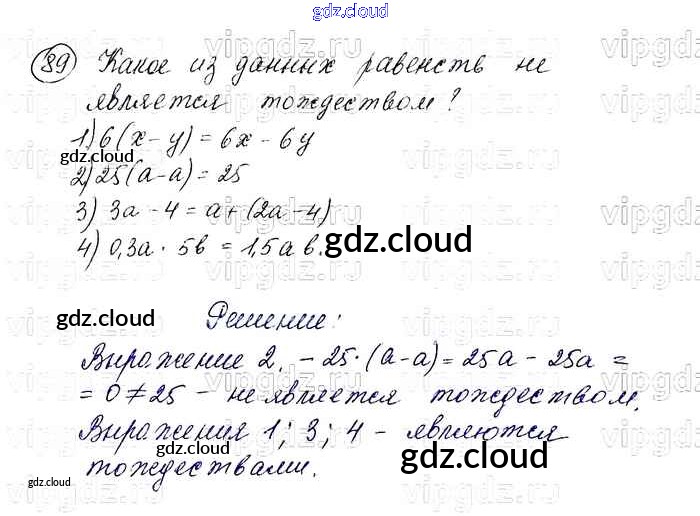 gdz.cloud
89 Какое из данных равенств не
является тождеством?
1) 6(x-y) = 6x - 6y
gdz.cloud
2) 25(a-a) = 25
3) 3a - 4 = a + (2a - 4)
4) 0,3a · 5b = 1,5ab.
gdz.cloud
gdz.cloud
Решение:
Выражение 2. - 25·(a-a) = 25a - 25a =
= 0 ≠ 25 - не является тождеством.
gdz.cloud
Выражения 1; 3; 4 - являются
gdz.cloud
тождествами.
gdz.cloud